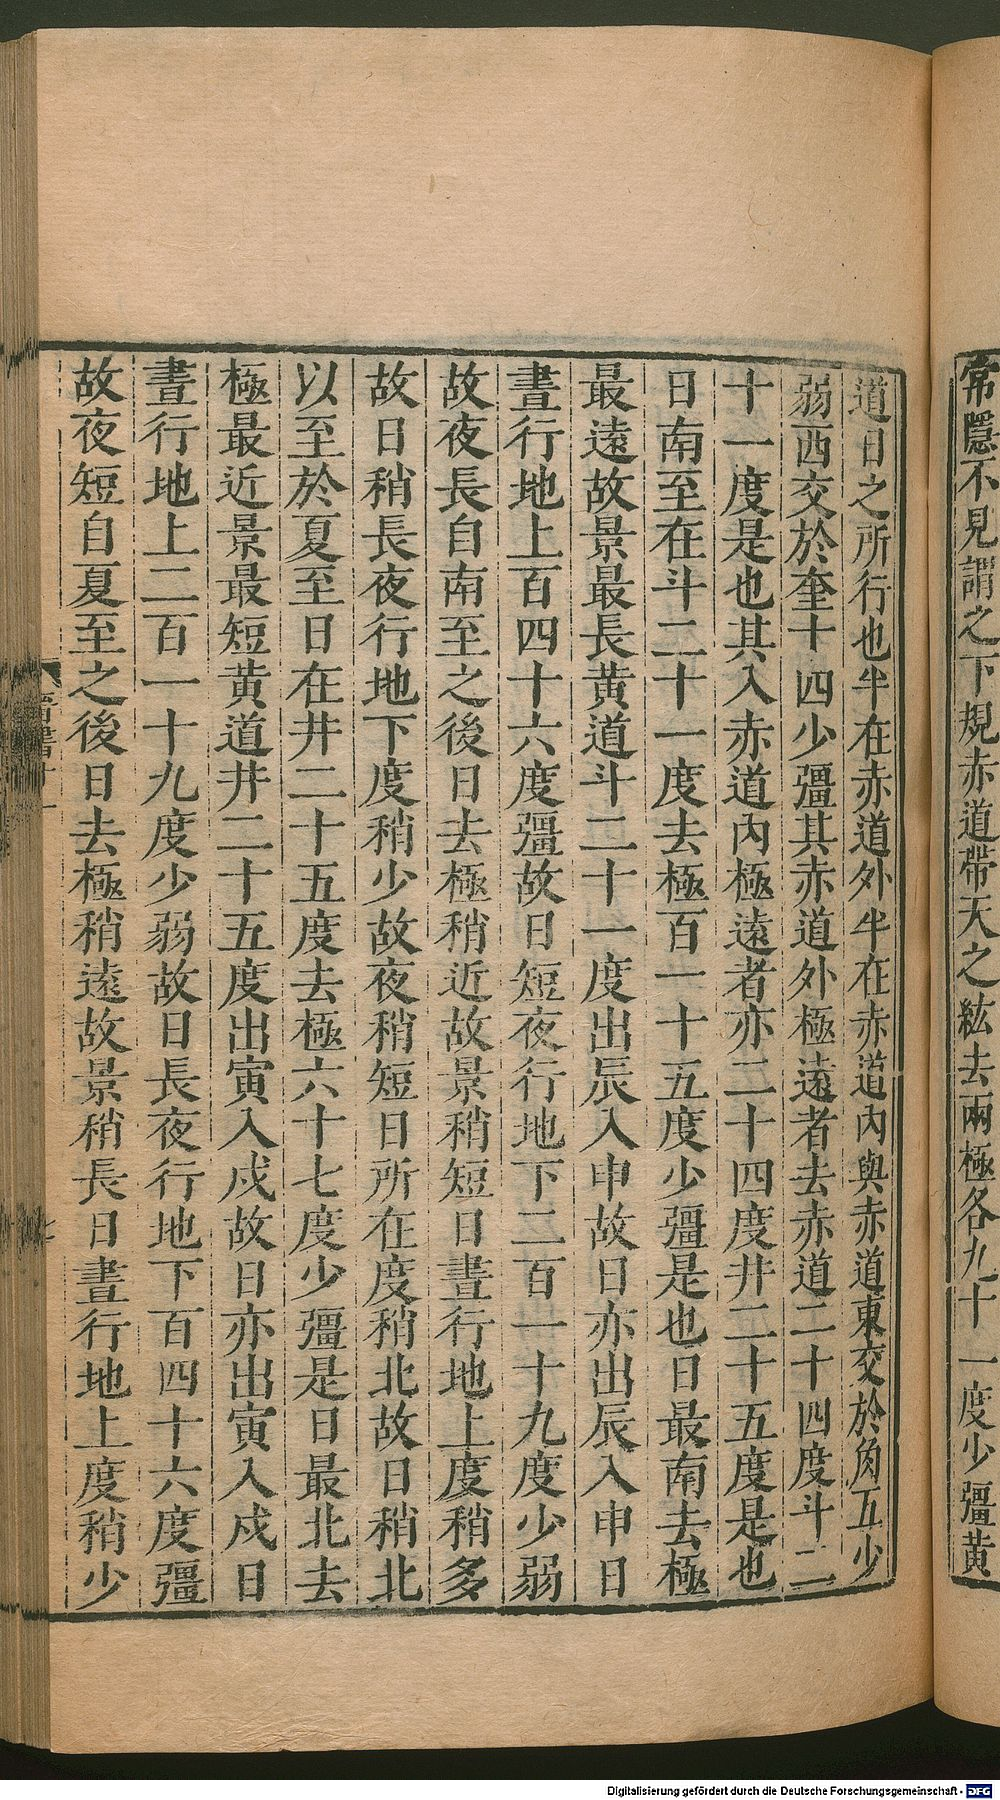 常隱不見謂之下規赤道帶天之紘去兩極各九十一度少彊黄
道日之所行也半在赤道外半在赤道內與赤道東交於角五少
弱西交於奎十四少彊其赤道外極遠者去赤道二十四度斗二
十一度是也其入赤道內極遠者亦二十四度井二十五度是也
日南至在斗二十一度去極百一十五度少彊是也日最南去極
最遠故景最長黄道斗二十一度出辰入申故日亦出辰入申日
晝行地上百四十六度彊故日短夜行地下二百一十九度少弱
故夜長自南至之後日去極稍近故景稍短日晝行地上度稍多
故日稍長夜行地下度稍少故夜稍短日所在度稍北故日稍北
以至於夏至日在井二十五度去極六十七度少彊是日最北去
極最近景最短黄道井二十五度出寅入戍故日亦出寅入戍日
晝行地上二百一十九度少弱故日長夜行地下百四十六度彊
故夜短自夏至之後日去極稍遠故景稍長日晝行地上度稍少
Digitalisierung gefördert durch die Deutsche Forschungsgemeinschaft - DFG